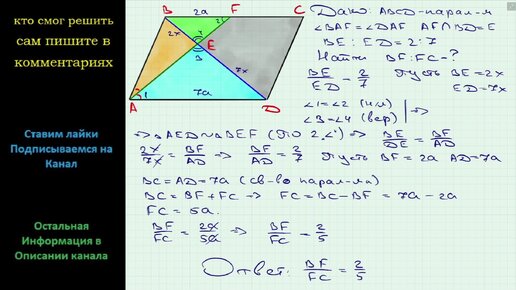 кто смог решить
сам пишите в
комментариях
Ставим лайки
Подписываемся на
Канал
Остальная
Информация в
Описании канала
B 2a F C
2x 2
4
E
3
7x
2
1 7a
A D
Дано: ABCD - парал-м
∠BAF = ∠DAF AF∩BD=E
BE : ED = 2:7
Найти BF:FC-?
BE/ED = 2/7 Пусть BE = 2x
ED = 7x
∠1=∠2 (н/л)
∠3=∠4 (вер) | ⇒
⇒ △AED ∾ △BEF (по 2∠) ⇒ BE/DE = BF/AD
2x/7x = BF/AD ⇒ BF/AD = 2/7 Пусть BF = 2a AD=7a
BC = AD = 7a (св-во парал-ма)
BC = BF + FC ⇒ FC = BC - BF = 7a - 2a
FC = 5a.
BF/FC = 2a/5a ⇒ BF/FC = 2/5
Ответ: BF/FC = 2/5